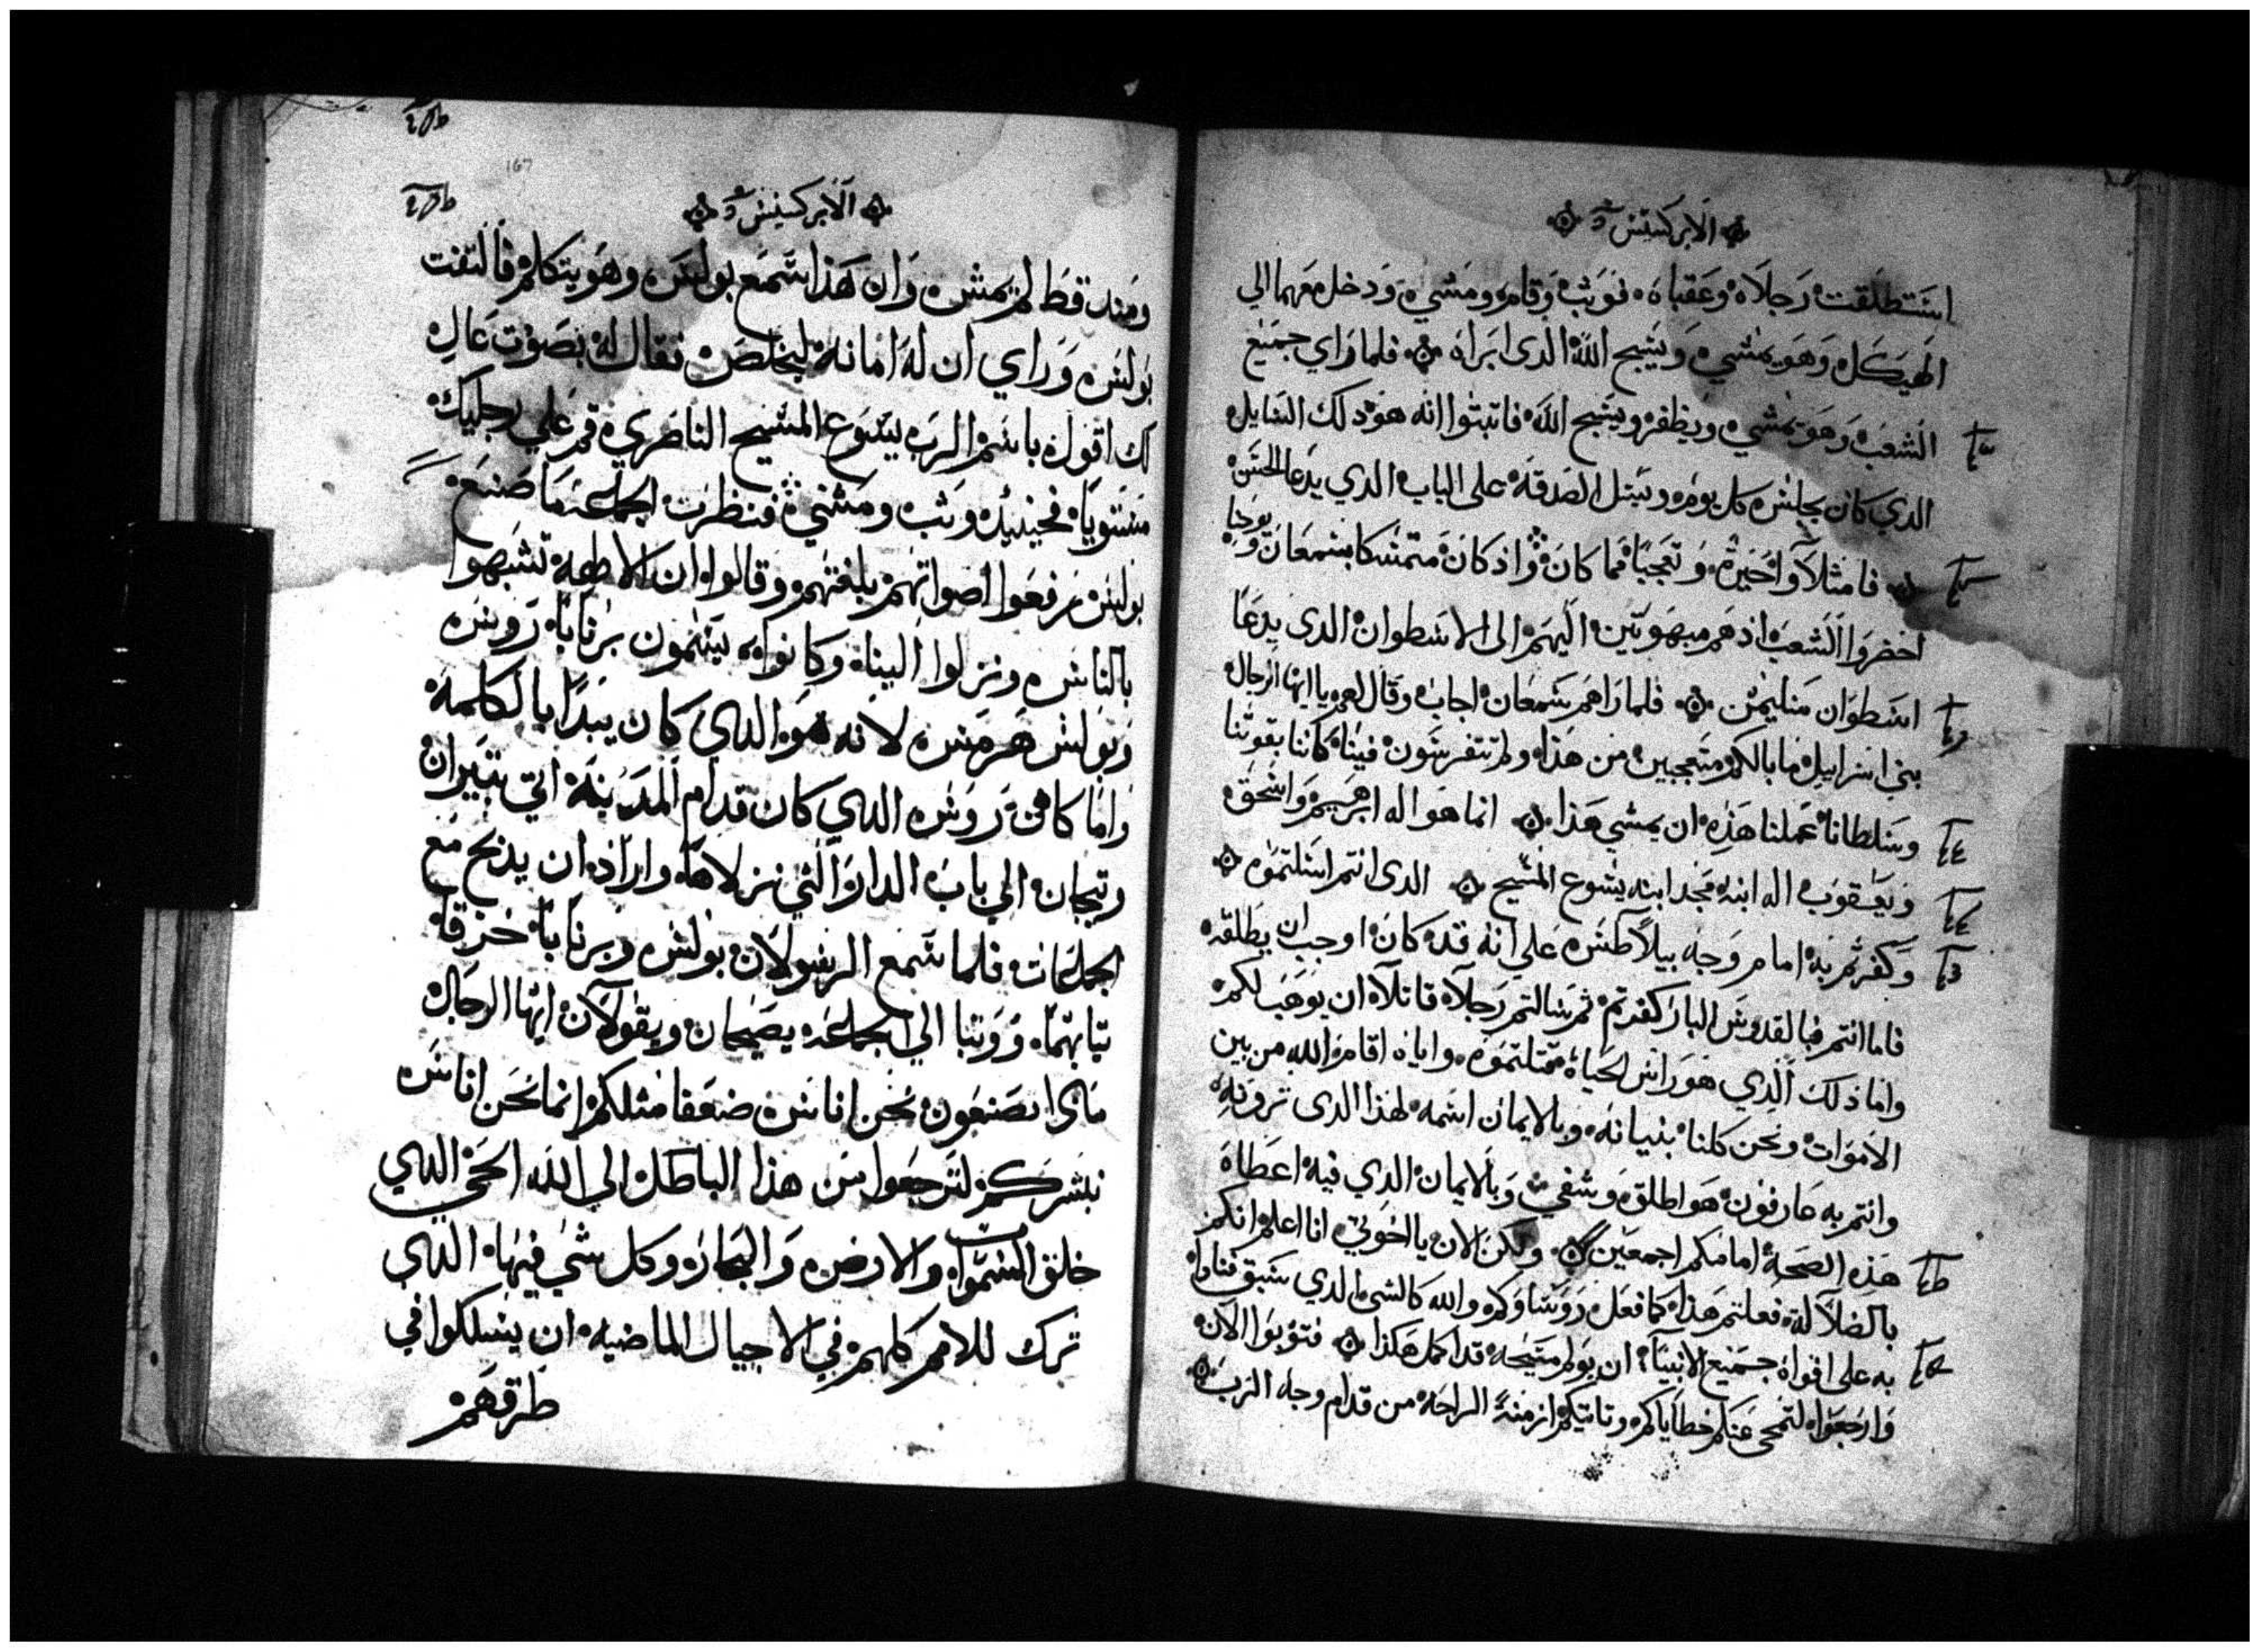 الابركسيس
استطلقت رجلاه وعقباه فوثب وقام ومشي ودخل معهما الي
الهيكل وهو يمشي ويسبح الله الدى ابراه فلما راي جميع
الشعب وهو يمشي ويظفر ويسبح الله فاتبتوا انه هو دلك السايل
الدي كان يجلس كل يوم ويسل الصدقه على الباب الدي يدعا الحسن
فامثلاوا حيرة وتعجبا مما كان واذ كان متمسكا بشمعان ويوحنا
احضروا الشعب اذ هم مبهوتين اليهم الى الاسطوان الدى يدعا
اسطوان سليمن فلما راهم شمعان اجاب وقال لهم يا ايها الرجال
بني اسراييل ما بالكم متعجبين من هذا ولم تتفرسون فينا كاننا بقوتنا
وسلطاننا عملنا هذه ان يمشي هذا انما هو اله ابرهيم واسحق
ويعقوب اله ابنه مجد ابنه يسوع المسيح الدى انتم اسلتموه
وكفرتم به امام وجه بيلاطس علي انه قد كان اوجب ان يطلقه
فاما انتم فبالقدوس البار كفرتم ثم سالتم رجلا قاتلا ان يوهب لكم
واما ذلك الذي هو راس الحياه فقتلتموه واياه اقامه الله من بين
الاموات ونحن كلنا بنيانه وبالايمان اسمه لهذا الدى ترونه
وانتم به عارفون هو اطلق وشفي وبالايمان الدي فيه اعطاه
هذه الصحة امامكم اجمعين ولكن الان يا اخوتي انا اعلم انكم
بالضلاله فعلتم هذا كما فعل روساوكم والله كالشى الدي سبق فنادا
به على افواه جميع الانبيا ان يولم مسيحه قد اكمل هكذا فتوبوا الان
وارجعوا لتمحى عنكم خطاياكم وتاتيكم ازمنة الراحه من قدام وجه الرب
167
الابركسيس
ومند قط لم يمش وان هذا سمع بولس وهو يتكلم فالتفت
بولس وراي ان له امانه ليخلص فقال له بصوت عال
لك اقول باسم الرب يسوع المسيح الناصري قم علي رجليك
مستويا فحينيد وثب ومشي فنظرت الجماعه ما صنع
بولس فرفعوا اصواتهم بلغتهم وقالوا ان الالهه تشبهوا
بالناس ونزلوا الينا وكانوا يسمون برنابا روس
وبولس هرمس لانه هو الدي كان يبدا بالكلمه
واما كاهن روس الدي كان قدام المدينه اتي بثيران
وتيجان الي باب الدار التي نزلاها واراد ان يذبح مع
الجماعات فلما سمع الرسولان بولس وبرنابا خرقا
تيابهما ووتبا الي الجماعه يصيحان ويقولان ايها الرجال
مادا تصنعون نحن اناس ضعفا مثلكم انما نحن اناس
نبشركم لترجعوا من هذا الباطل الي الله الحي الدي
خلق السموات والارض والبحار وكل شي فيها الدي
ترك للامم كلهم في الاجيال الماضيه ان يسلكوا في
طرقهم